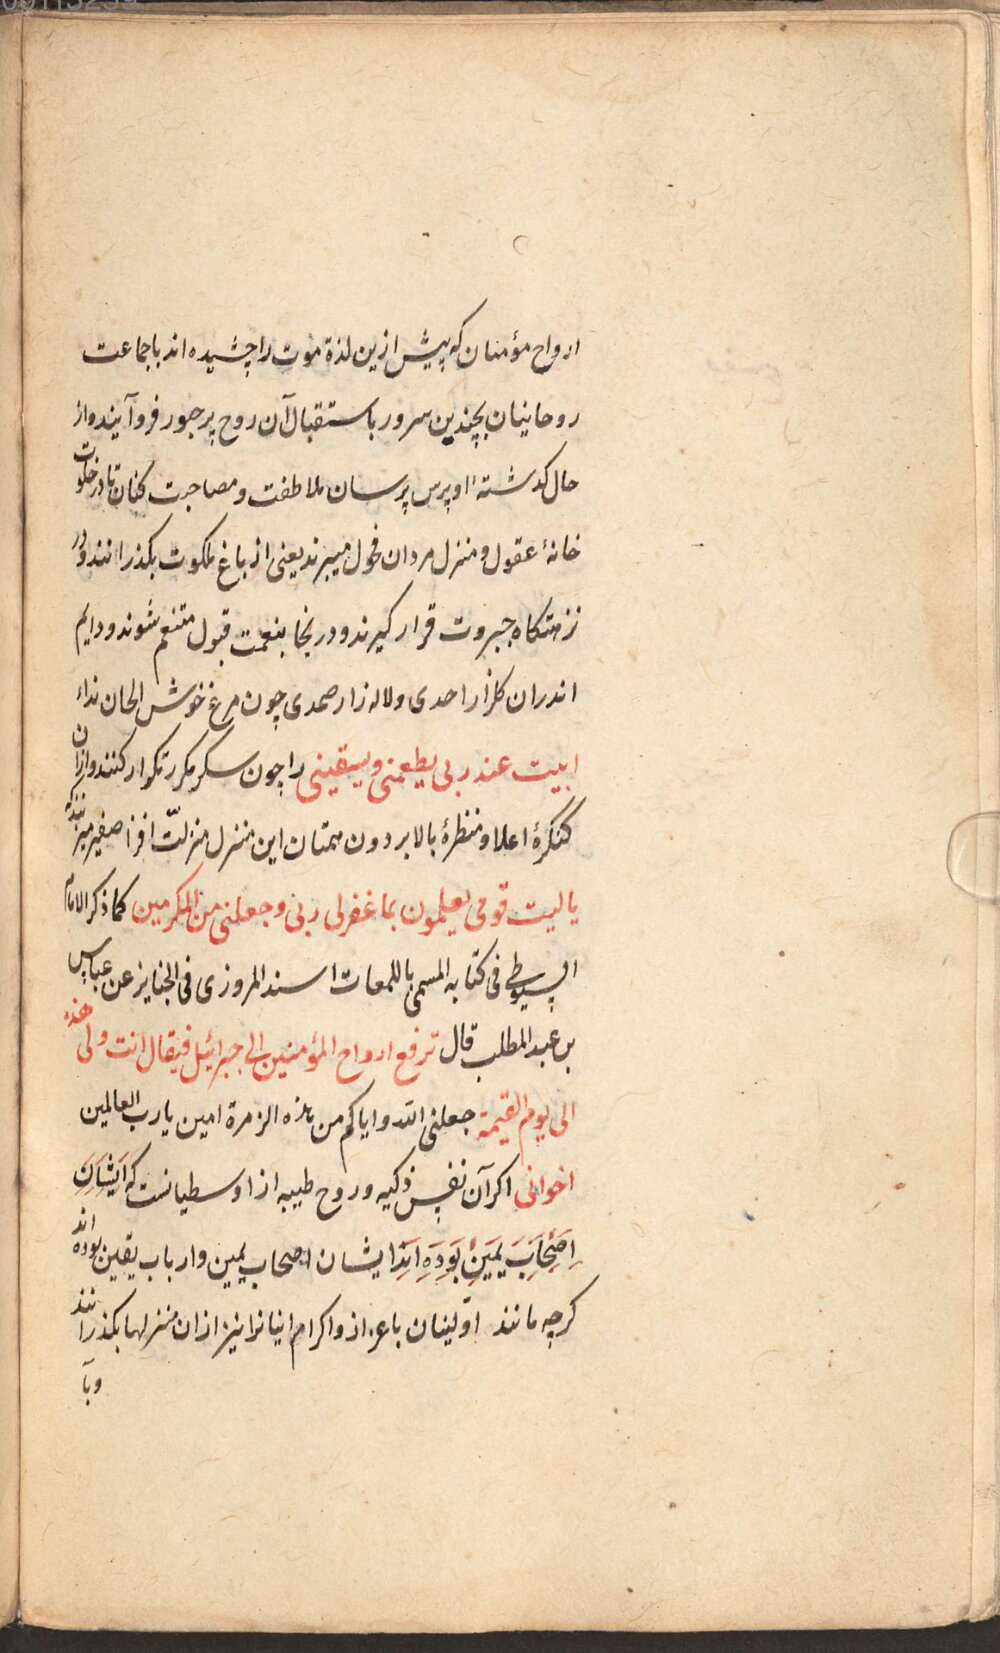 ارواح مؤمنان که پیش ازین لذة موت را چشیده اند با جماعت
روحانیان بچندین سرور باستقبال آن روح پر حبور فرو آیند و از
حال کذشتهٔ او پرس پرسان ملاطفت و مصاحبت کنان تا در خلوت
خانهٔ عقول و منزل مردان فحول میبرند یعنی از باغ ملکوت بکذرانند و در
نزهتکاه جبروت قرار کیرند و در نجا بنعمت قبول متنعم شوند و دایم
اندران کلزار احدی و لاله زار صمدی چون مرغ خوش الحان نداء
ابیت عند ربی یطعمنی و یسقینی را چون سکر مکرر تکرار کنند و ازان
کنکرهٔ اعلا و منظرهٔ بالا بر دون همتان این منزل منزلت افزا صفیر میزنند که
یا لیت قومی یعلمون بما غفر لی ربی و جعلنی من المکرمین کما ذکر الامام
السیوطی فی کتابه المسمی باللمعات اسند المروزی فی الجنایز عن عباس
بن عبد المطلب قال ترفع ارواح المؤمنین الی جبرائیل فیقال انت ولی هذه
الی یوم القیمة جعلنی الله و ایاکم من هذه الزمرة امین یا رب العالمین
اخوانی اکر آن نفس زکیه و روح طیبه از اوسطیانست که ایشان
اصحاب یمین بوده اند ایشان اصحاب یمین و ارباب یقین بوده اند
کرچه مانند اوّلینان با عزاز و اکرام اینانرا نیز ازان منزلها بکذرانند
و با